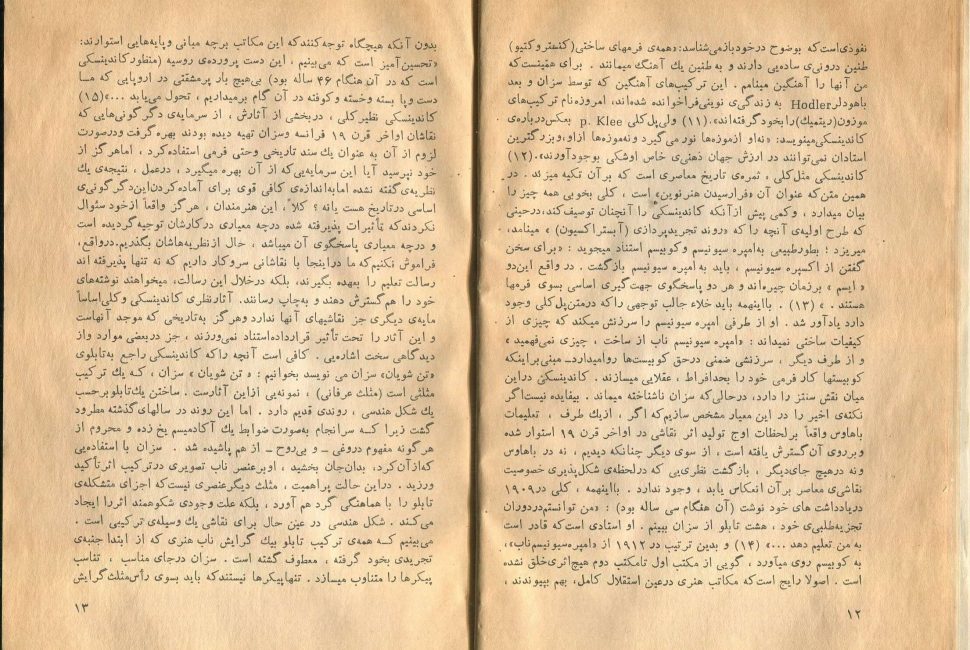 نفوذی‌است‌که بوضوح درخودبازمی‌شناسد:«همه‌ی فرمهای ساختی(کنسترو کتیو)
طنین درونی‌ی ساده‌یی دارند و به‌طنین یك آهنگ میمانند . برای همینست‌که
من آنها را آهنگین مینامم . این ترکیب‌های آهنگین که توسط سزان و بعد
باهودلرHodler به زندگی‌ی نوینی‌فراخوانده شده‌اند، امروزه‌نام ترکیب‌های
موزون(ریتمیك)رابخود‌گرفته‌اند».(۱۱) ولی‌پل‌کلی p. Klee بعکس‌درباره‌ی
کاندینسکی‌مینویسد: «نه‌او ازموزه‌ها نور می‌گیرد ونه‌موزه‌ها ازاو،وبزرگترین
استادان نمی‌توانند در ارزش جهان ذهنی‌ی خاص اوشکی بوجودآورند».(۱۲)
کاندینسکی مثل‌کلی ، ثمره‌ی تاریخ معاصری است که بر آن تکیه میزند . در
همین متن‌که عنوان آن «فرارسیدن هنرنوین» است ، کلی بخوبی همه چیز را
بیان میدارد ، وکمی پیش ازآنکه کاندینسکی را آنچنان توصیف‌کند،درحینی
که طرح اولیه‌ی آنچه را که «روند تجریدپردازی (آبستراکسیون) » مینامد،
میریزد ؛ بطورطبیعی به‌امپره سیونیسم وکوبیسم استناد میجوید : «برای سخن
گفتن از اکسپره سیونیسم ، باید به‌امپره سیونیسم بازگشت . در واقع این‌دو
« ایسم » برزمان چیره‌اند و هر دو پاسخگوی جهت گیری اساسی بسوی فرمها
هستند . » (۱۳) . بااینهمه باید خلاء جالب توجهی راکه درمتن‌پل‌کلی وجود
دارد یادآور شد . او از طرفی امپره سیونیسم را سرزنش میکند که چیزی از
کیفیات ساختی نمیداند : «امپره سیونیسم ناب از ساخت ، چیزی نمی‌فهمید »
و از طرف دیگر ، سرزنشی ضمنی درحق کوبیست‌ها روامیداردـ مبنی‌براینکه
کوبیستها کار فرمی خود را بحدافراط ، عقلایی میسازند . کاندینسکی دراین
میان نقش سنتز را دارد، درحالی‌که سزان ناشناخته میماند . بیفایده نیست‌اگر
نکته‌ی اخیر را در این معیار مشخص سازیم‌که اگر ، ازیك طرف ، تعلیمات
باهاوس واقعاً برلحظات اوج تولید اثر نقاشی در اواخر قرن ۱۹ استوار شده
وبرروی آن‌گسترش یافته است ، از سوی دیگر چنانکه دیدیم ، نه در باهاوس
ونه درهیچ جای‌دیگر ، بازگشت نظری‌یی که درلحظه‌ی شکل‌پذیری خصوصیت
نقاشی‌ی معاصر بر آن انعکاس یابد ، وجود ندارد . بااینهمه ، کلی در۱۹۰۹
دریادداشت های خود نوشت (آن هنگام سی ساله بود) : «من توانستم‌دردوران
تجربه‌طلبی‌ی خود ، هشت تابلو از سزان ببینم . او استادی است‌که قادر است
به من تعلیم دهد ...» (۱۴) و بدین ترتیب در ۱۹۱۲ از «امپره‌سیونیسم‌ناب»،
به کوبیسم روی میاورد ، گویی از مکتب اول تامکتب دوم هیچ‌اثری‌خلق نشده
است . اصولا رایج است‌که مکاتب هنری درعین استقلال کامل، بهم بپیوندند ،
۱۲
بدون آنکه هیچگاه توجه‌کنندکه این مکاتب برچه مبانی وپایه‌هایی استوارند:
«تحسین‌آمیز است که می‌بینیم ، این دست پرورده‌ی روسیه (منظورکاندینسکی
است که در آن هنگام ۴۶ ساله بود) بی‌هیچ بار پرمشقتی در اروپایی که مــا
دست وپا بسته وخسته وکوفته در آن گام برمیداریم ، تحول می‌یابد ...»(۱۵)
کاندینسکی نظیرکلی ، دربخشی از آثارش ، از سرمایه‌ی دگرگونی‌هایی که
نقاشان اواخر قرن ۱۹ فرانسه وسزان تهیه دیده بودند بهره گرفت ودرصورت
لزوم از آن به عنوان یك‌سند تاریخی وحتی فرمی استفاده‌کرد ، اماهرگز از
خود نپرسید آیا این سرمایه‌یی‌که از آن بهره میگیرد ، درعمل ، نتیجه‌ی یك
نظریه‌ی‌گفته نشده امابه‌اندازه‌ی کافی قوی برای آماده‌کردن‌این‌دگرگونی‌ی
اساسی درتاریخ هست یانه ؟ کلاً، این هنرمندان ، هرگز واقعاً ازخود سئوال
نکردندکه تأثیرات پذیرفته شده درچه معیاری درکارشان توجیه‌گردیده است
و درچه معیاری پاسخگوی آن میباشد ، حال ازنظریه‌هاشان بگذریم.درواقع،
فراموش نکنیم‌که ما دراینجا با نقاشانی سروکار داریم که نه تنها پذیرفته اند
رسالت تعلیم را بعهده بگیرند، بلکه درخلال این رسالت، میخواهند نوشته‌های
خود را هم‌گسترش دهند و به‌چاپ رسانند. آثارنظری کاندینسکی وکلی‌اساساً
مایه‌ی دیگری جز نقاشیهای آنها ندارد وهرگز به‌تاریخی که موجد آنهاست
و این آثار را تحت تأثیر قرارداده‌استناد نمی‌ورزند ، جز دربعضی موارد واز
دیدگاهی سخت اشاره‌یی . کافی است آنچه راکه کاندینسکی راجع به‌تابلوی
«تن شویان» سزان می نویسد بخوانیم : « تن شویان » سزان ، کــه یك ترکیب
مثلثی است (مثلث عرفانی) ، نمونه‌یی ازاین آثارست . ساختن یك‌تابلوبرحسب
یك شکل هندسی ، روندی قدیم دارد . اما این روند در سالهای‌گذشته مطرود
گشت زیرا کــه سرانجام به‌صورت ضوابط یك آکادمیسم یخ زده و محروم از
هر گونه مفهوم دروغی ــ و بی‌روح ــ از هم پاشیده شد . سزان با استفاده‌یی
که‌ازآن‌کرد، بدان‌جان بخشید ، اوبرعنصر ناب تصویری درترکیب اثرتأکید
ورزید . دراین حالت پراهمیت ، مثلث دیگرعنصری نیست‌که اجزای متشکله‌ی
تابلو را با هماهنگی گردهم آورد ، بلکه علت وجودی شکوهمند اثررا ایجاد
می‌کنــد . شکل هندسی در عین حال برای نقاشی یك وسیله‌ی ترکیبی است .
می‌بینیم کــه همه‌ی ترکیب تابلو بیك گرایش ناب هنری که از ابتدا جنبه‌ی
تجریدی بخود گرفته ، معطوف گشته است . سزان درجای مناسب ، تناسب
پیکرها را متناوب میسازد . تنهاپیکرها نیستندکه باید بسوی رأس‌مثلث‌گرایش
۱۳